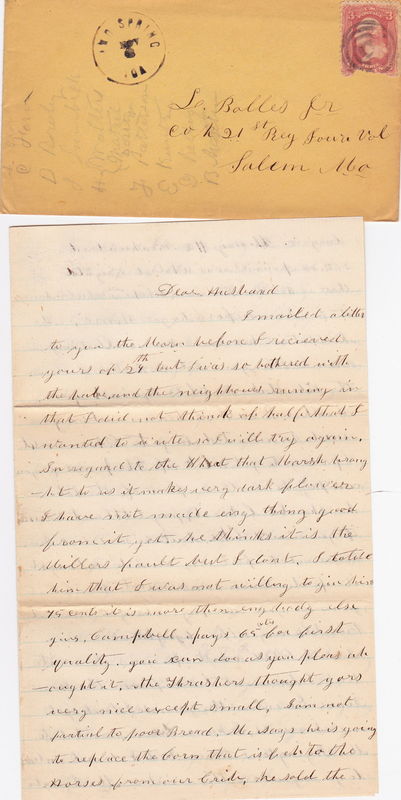 IND SPRING
NOV
6
IOA
3
Lo. Bolles Jr
Co K 21st Reg Iowa Vol
Salem Mo
Dear Husband
I mailed a letter
to you the Morn before I recieved
yours of 29th but I was so bothered with
the babe and the neighbours runing in
that I did not think of half that I
wanted to write so I will try again.
In regard to the Wheat that Marsh broug
-ht to us it makes very dark flower
I have not made eny thing good
from it yet he thinks it is the
Millers fault but I dont. I tolde
him that I was not willing to give him
75 cents it is more then eny body else
give. Campbell pays 65 cts for first
quality. you can doe as you pleas ab
-ought it. the Thrashers thought yors
very nice except small, I am not
partial to poor Bread. M. says he is going
to replace the Corn that is fed to the
Horses from our Crib, he sold the